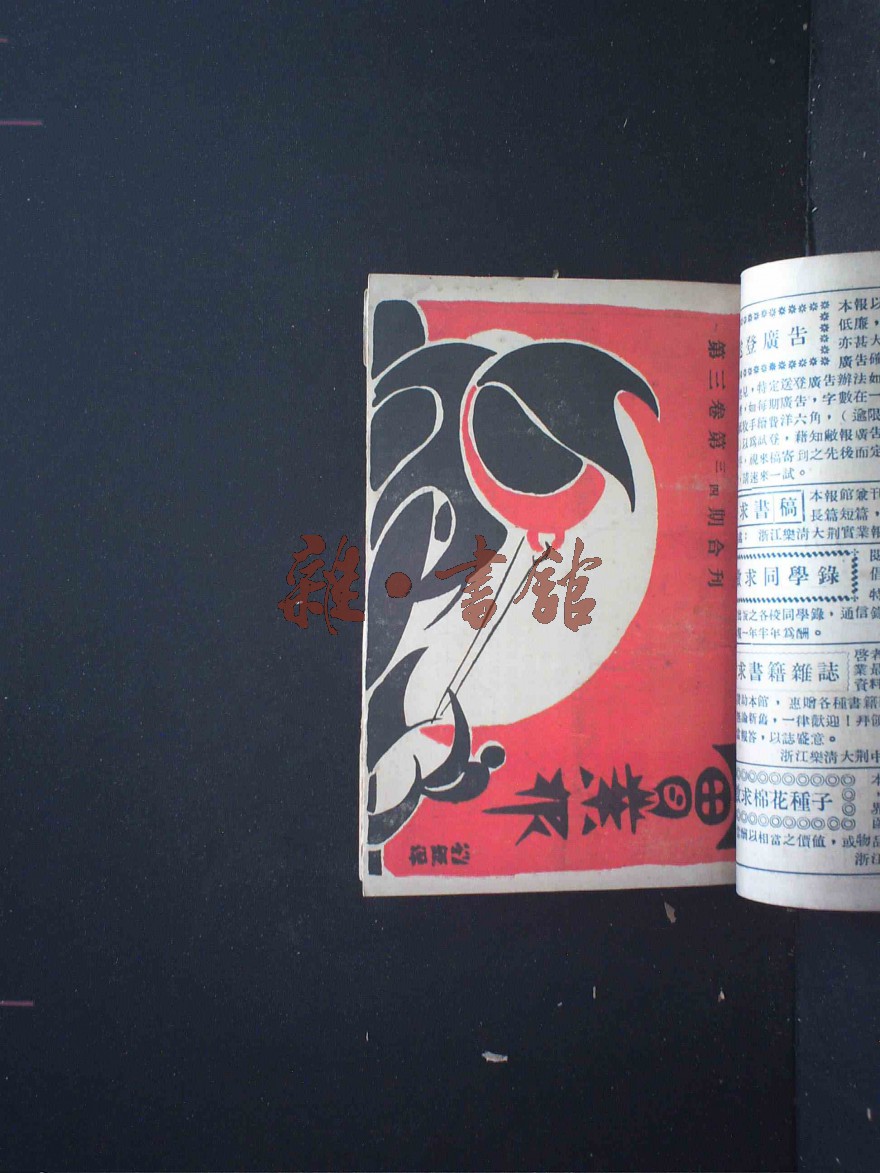 第三卷第三四期合刊
雜·書館
登廣告
本報以
低廉，
亦甚大
廣告確
見，特定送登廣告辦法如
如每期廣告，字數在一
手續費洋六角，（逾限
爲試登，藉知敝報廣告
視來稿寄到之先後而定
請速來一試。
求書稿
本報館彙刊
長篇短篇，
浙江樂清大荆實業報
求同學錄
版之各校同學錄，通信錄
一年半年爲酬。
求書籍雜誌
啓者
業最
資料
助本館，惠贈各種書籍
論新舊，一律歡迎！拜領
報答，以誌盛意。
浙江樂清大荆中
求棉花種子
酬以相當之價值，或物品
浙江